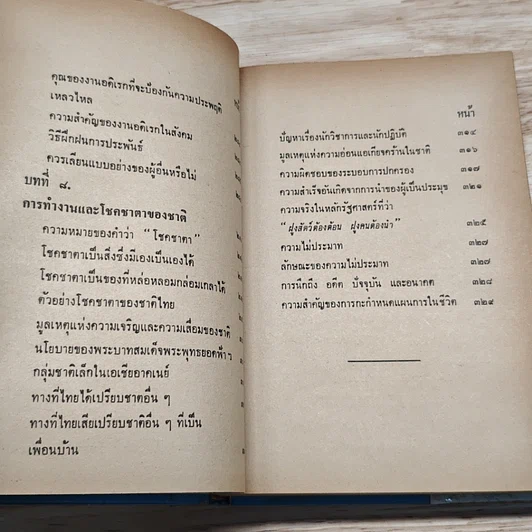 คุณของงานอดิเรกที่จะป้องกันความประพฤติ
เหลวไหล
ความสำคัญของงานอดิเรกในสังคม
วิธีฝึกฝนการประพันธ์
ควรเลียนแบบอย่างของผู้อื่นหรือไม่
บทที่ ๘.
การทำงานและโชคชาตาของชาติ
ความหมายของคำว่า “ โชคชาตา ”
โชคชาตาเป็นสิ่งซึ่งมีเองเป็นเองได้
โชคชาตาเป็นของที่หล่อหลอมกล่อมเกลาได้
ตัวอย่างโชคชาตาของชาติไทย
มูลเหตุแห่งความเจริญและความเสื่อมของชาติ
นโยบายของพระบาทสมเด็จพระพุทธยอดฟ้า ฯ
กลุ่มชาติเล็กในเอเชียอาคเนย์
ทางที่ไทยได้เปรียบชาติอื่น ๆ
ทางที่ไทยเสียเปรียบชาติอื่น ๆ ที่เป็น
เพื่อนบ้าน
หน้า
ปัญหาเรื่องนักวิชาการและนักปฏิบัติ ๓๑๔
มูลเหตุแห่งความอ่อนแอเกียจคร้านในชาติ ๓๑๖
ความผิดชอบของระบอบการปกครอง ๓๑๗
ความสำเร็จอันเกิดจากการนำของผู้เป็นประมุข ๓๒๑
ความจริงในหลักรัฐศาสตร์ที่ว่า
“ ฝูงสัตว์ต้องต้อน ฝูงคนต้องนำ” ๓๒๕
ความไม่ประมาท ๓๒๗
ลักษณะของความไม่ประมาท ๓๒๗
การนึกถึง อดีต ปัจจุบัน และอนาคต ๓๒๘
ความสำคัญของการกะกำหนดแผนการในชีวิต ๓๒๙